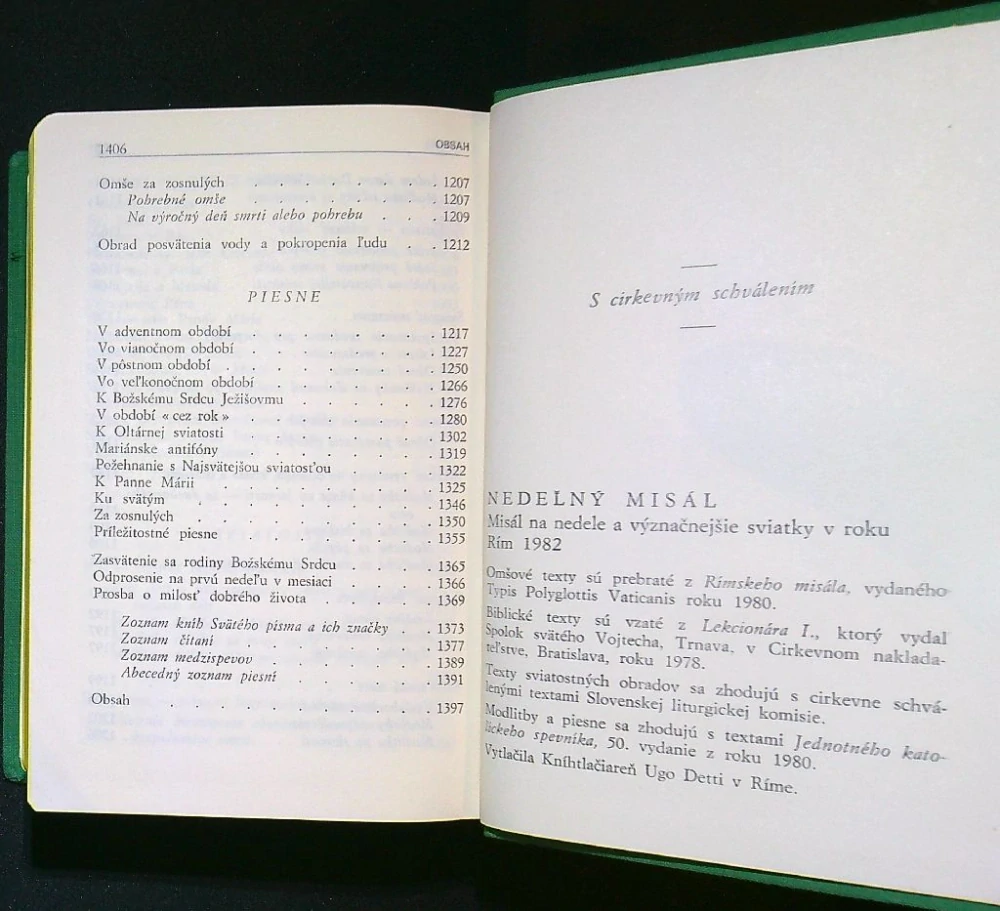 1406 OBSAH
Omše za zosnulých . . . . . . . . 1207
Pohrebné omše . . . . . . . . 1207
Na výročný deň smrti alebo pohrebu . . . 1209
Obrad posvätenia vody a pokropenia ľudu . . 1212
PIESNE
V adventnom období . . . . . . . . 1217
Vo vianočnom období . . . . . . . . 1227
V pôstnom období . . . . . . . . . 1250
Vo veľkonočnom období . . . . . . . 1266
K Božskému Srdcu Ježišovmu . . . . . . 1276
V období « cez rok » . . . . . . . . 1280
K Oltárnej sviatosti . . . . . . . . 1302
Mariánske antifóny . . . . . . . . 1319
Požehnanie s Najsvätejšou sviatosťou . . . . 1322
K Panne Márii . . . . . . . . . 1325
Ku svätým . . . . . . . . . . 1346
Za zosnulých . . . . . . . . . . 1350
Príležitostné piesne . . . . . . . . 1355
Zasvätenie sa rodiny Božskému Srdcu . . . . 1365
Odprosenie na prvú nedeľu v mesiaci . . . . 1366
Prosba o milosť dobrého života . . . . . 1369
Zoznam kníh Svätého písma a ich značky . . 1373
Zoznam čítaní . . . . . . . . 1377
Zoznam medzispevov . . . . . . . 1389
Abecedný zoznam piesní . . . . . . 1391
Obsah . . . . . . . . . . . 1397
S cirkevným schválením
NEDEĽNÝ MISÁL
Misál na nedele a význačnejšie sviatky v roku
Rím 1982
Omšové texty sú prebraté z Rímskeho misála, vydaného
Typis Polyglottis Vaticanis roku 1980.
Biblické texty sú vzaté z Lekcionára I., ktorý vydal
Spolok svätého Vojtecha, Trnava, v Cirkevnom naklada-
teľstve, Bratislava, roku 1978.
Texty sviatostných obradov sa zhodujú s cirkevne schvá-
lenými textami Slovenskej liturgickej komisie.
Modlitby a piesne sa zhodujú s textami Jednotného kato-
líckeho spevníka, 50. vydanie z roku 1980.
Vytlačila Kníhtlačiareň Ugo Detti v Ríme.